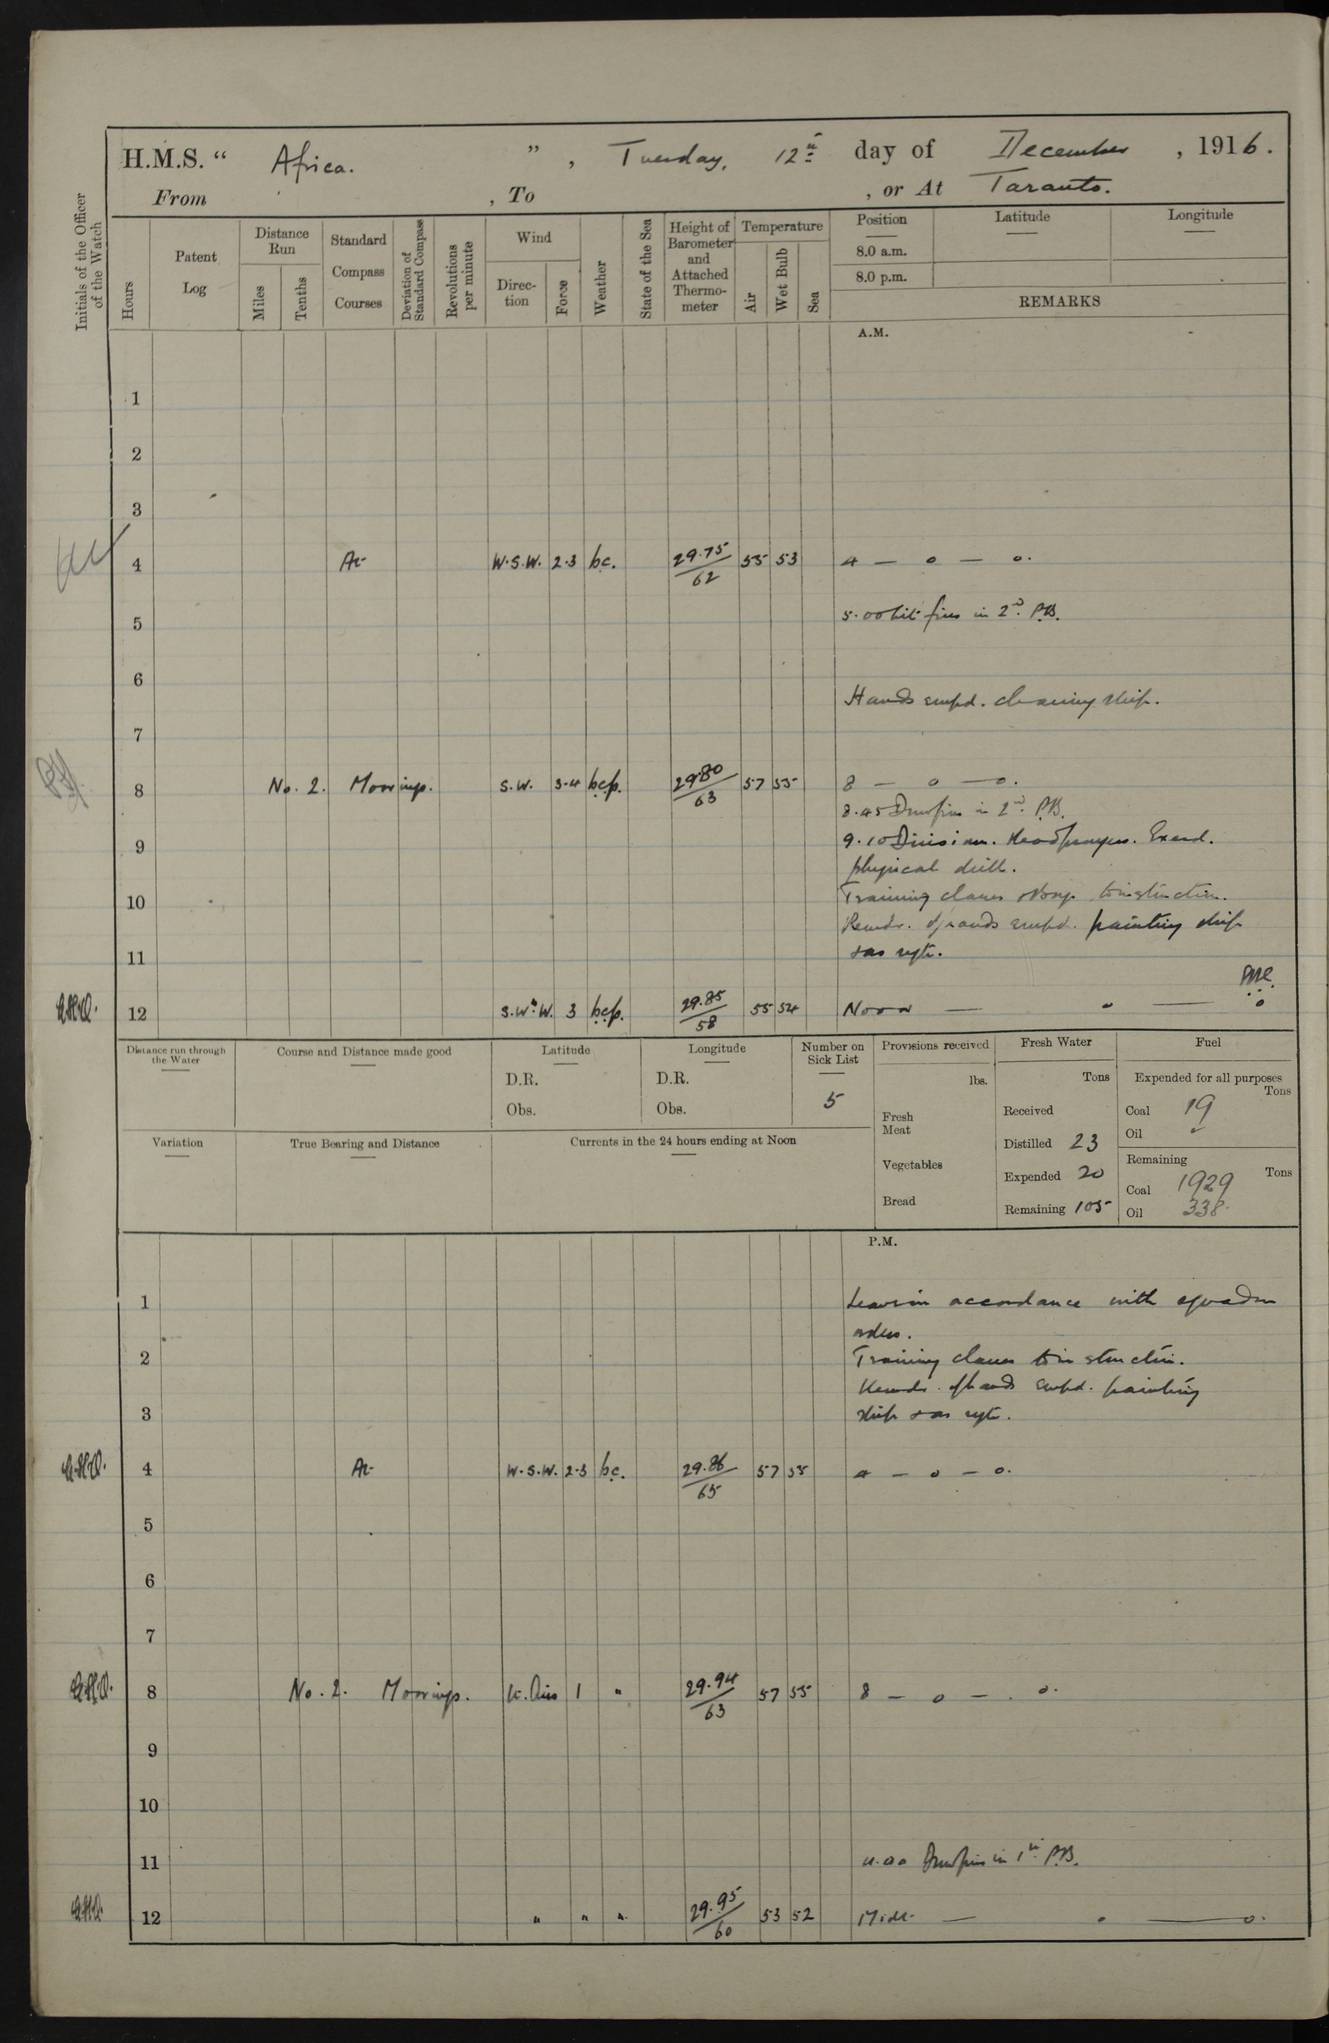 H.M.S. “ Africa. ” , Tuesday, 12th day of December , 1916.
From , To , or At Taranto.
Initials of the Officer of the Watch
Hours
Patent Log
Distance Run
Miles
Tenths
Standard Compass Courses
Deviation of Standard Compass
Revolutions per minute
Wind
Direction
Force
Weather
State of the Sea
Height of Barometer and Attached Thermometer
Temperature
Air
Wet Bulb
Sea
Position
Latitude
Longitude
8.0 a.m.
8.0 p.m.
REMARKS
A.M.
1
2
3
4 At W.S.W. 2.3 bc. 29.75/62 55 53 4 — o — o.
5 5.00 Lit fires in 2nd P.B.
6
Hands empd. cleaning ship.
7
8 No. 2. Moorings. S.W. 3-4 bcp. 29.80/63 57 55 8 — o — o.
8.45 Drew fires in 2nd P.B.
9 9.10 Divisions. Read prayers. Exercd.
physical drill.
10 Training classes & boys to instruction.
Remdr. of hands empd. painting ship
11 & as reqte.
12 S.W.'W. 3 bcp. 29.85/58 55 54 Noon — " — o
Distance run through the Water
Course and Distance made good
Latitude
D.R.
Obs.
Longitude
D.R.
Obs.
Number on Sick List
5
Provisions received
lbs.
Fresh Meat
Vegetables
Bread
Fresh Water
Tons
Received
Distilled 23
Expended 20
Remaining 105
Fuel
Expended for all purposes
Tons
Coal 19
Oil
Remaining
Tons
Coal 1929
Oil 338
Variation
True Bearing and Distance
Currents in the 24 hours ending at Noon
P.M.
1 Leave in accordance with squadron
orders.
2 Training classes to instruction.
Remdr. of hands empd. painting
3 ship & as reqte.
4 At W.S.W. 2-3 bc. 29.86/65 57 55 4 — o — o.
5
6
7
8 No. 2. Moorings. Lt. Airs 1 " 29.94/63 57 55 8 — o — o.
9
10
11 Drew fires in 1st P.B.
12 " " " 29.95/60 53 52 Midt. — " — o.